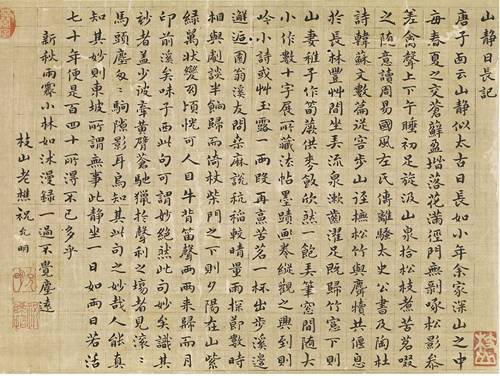 山靜日長記
唐子西云山靜似太古日長如小年余家深山之中
每春夏之交蒼蘚盈堦落花滿徑門無剝啄松影參
差禽聲上下午睡初足旋汲山泉拾松枝煮苦茗啜
之隨意讀周易國風左氏傳離騷太史公書及陶杜
詩韓蘇文數篇從容步山徑撫松竹與麛犢共偃息
於長林豐艸間坐弄流泉漱齒濯足既歸竹窗下則
山妻稚子作筍蕨供麥飯欣然一飽弄筆窗間隨大
小作數十字展所藏法帖墨蹟畫卷縱觀之興到則
吟小詩或艸玉露一兩段再烹苦茗一杯出步溪邊
邂逅園翁溪友問桑麻說秔稻較晴量雨探節數時
相與劇談半餉歸而倚杖柴門之下則夕陽在山紫
綠萬狀變幻頃恍可人目牛背笛聲兩兩來歸而月
印前溪矣味子西此句可謂妙絕然此句妙矣識其
妙者蓋少彼牽黃臂蒼馳獵於聲利之場者見滾滾
馬頭塵匆匆駒隙影耳烏知其此句之妙哉人能真
知其妙則東坡所謂無事此靜坐一日如兩日若活
七十年便是百四十所得不已多乎
新秋雨霽小林如沐漫錄一過不覺塵遠
枝山老樵祝允明